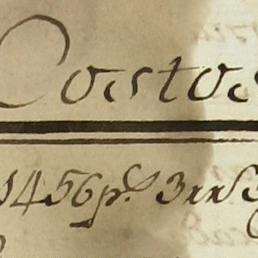 Costos
1456ps 3rrs